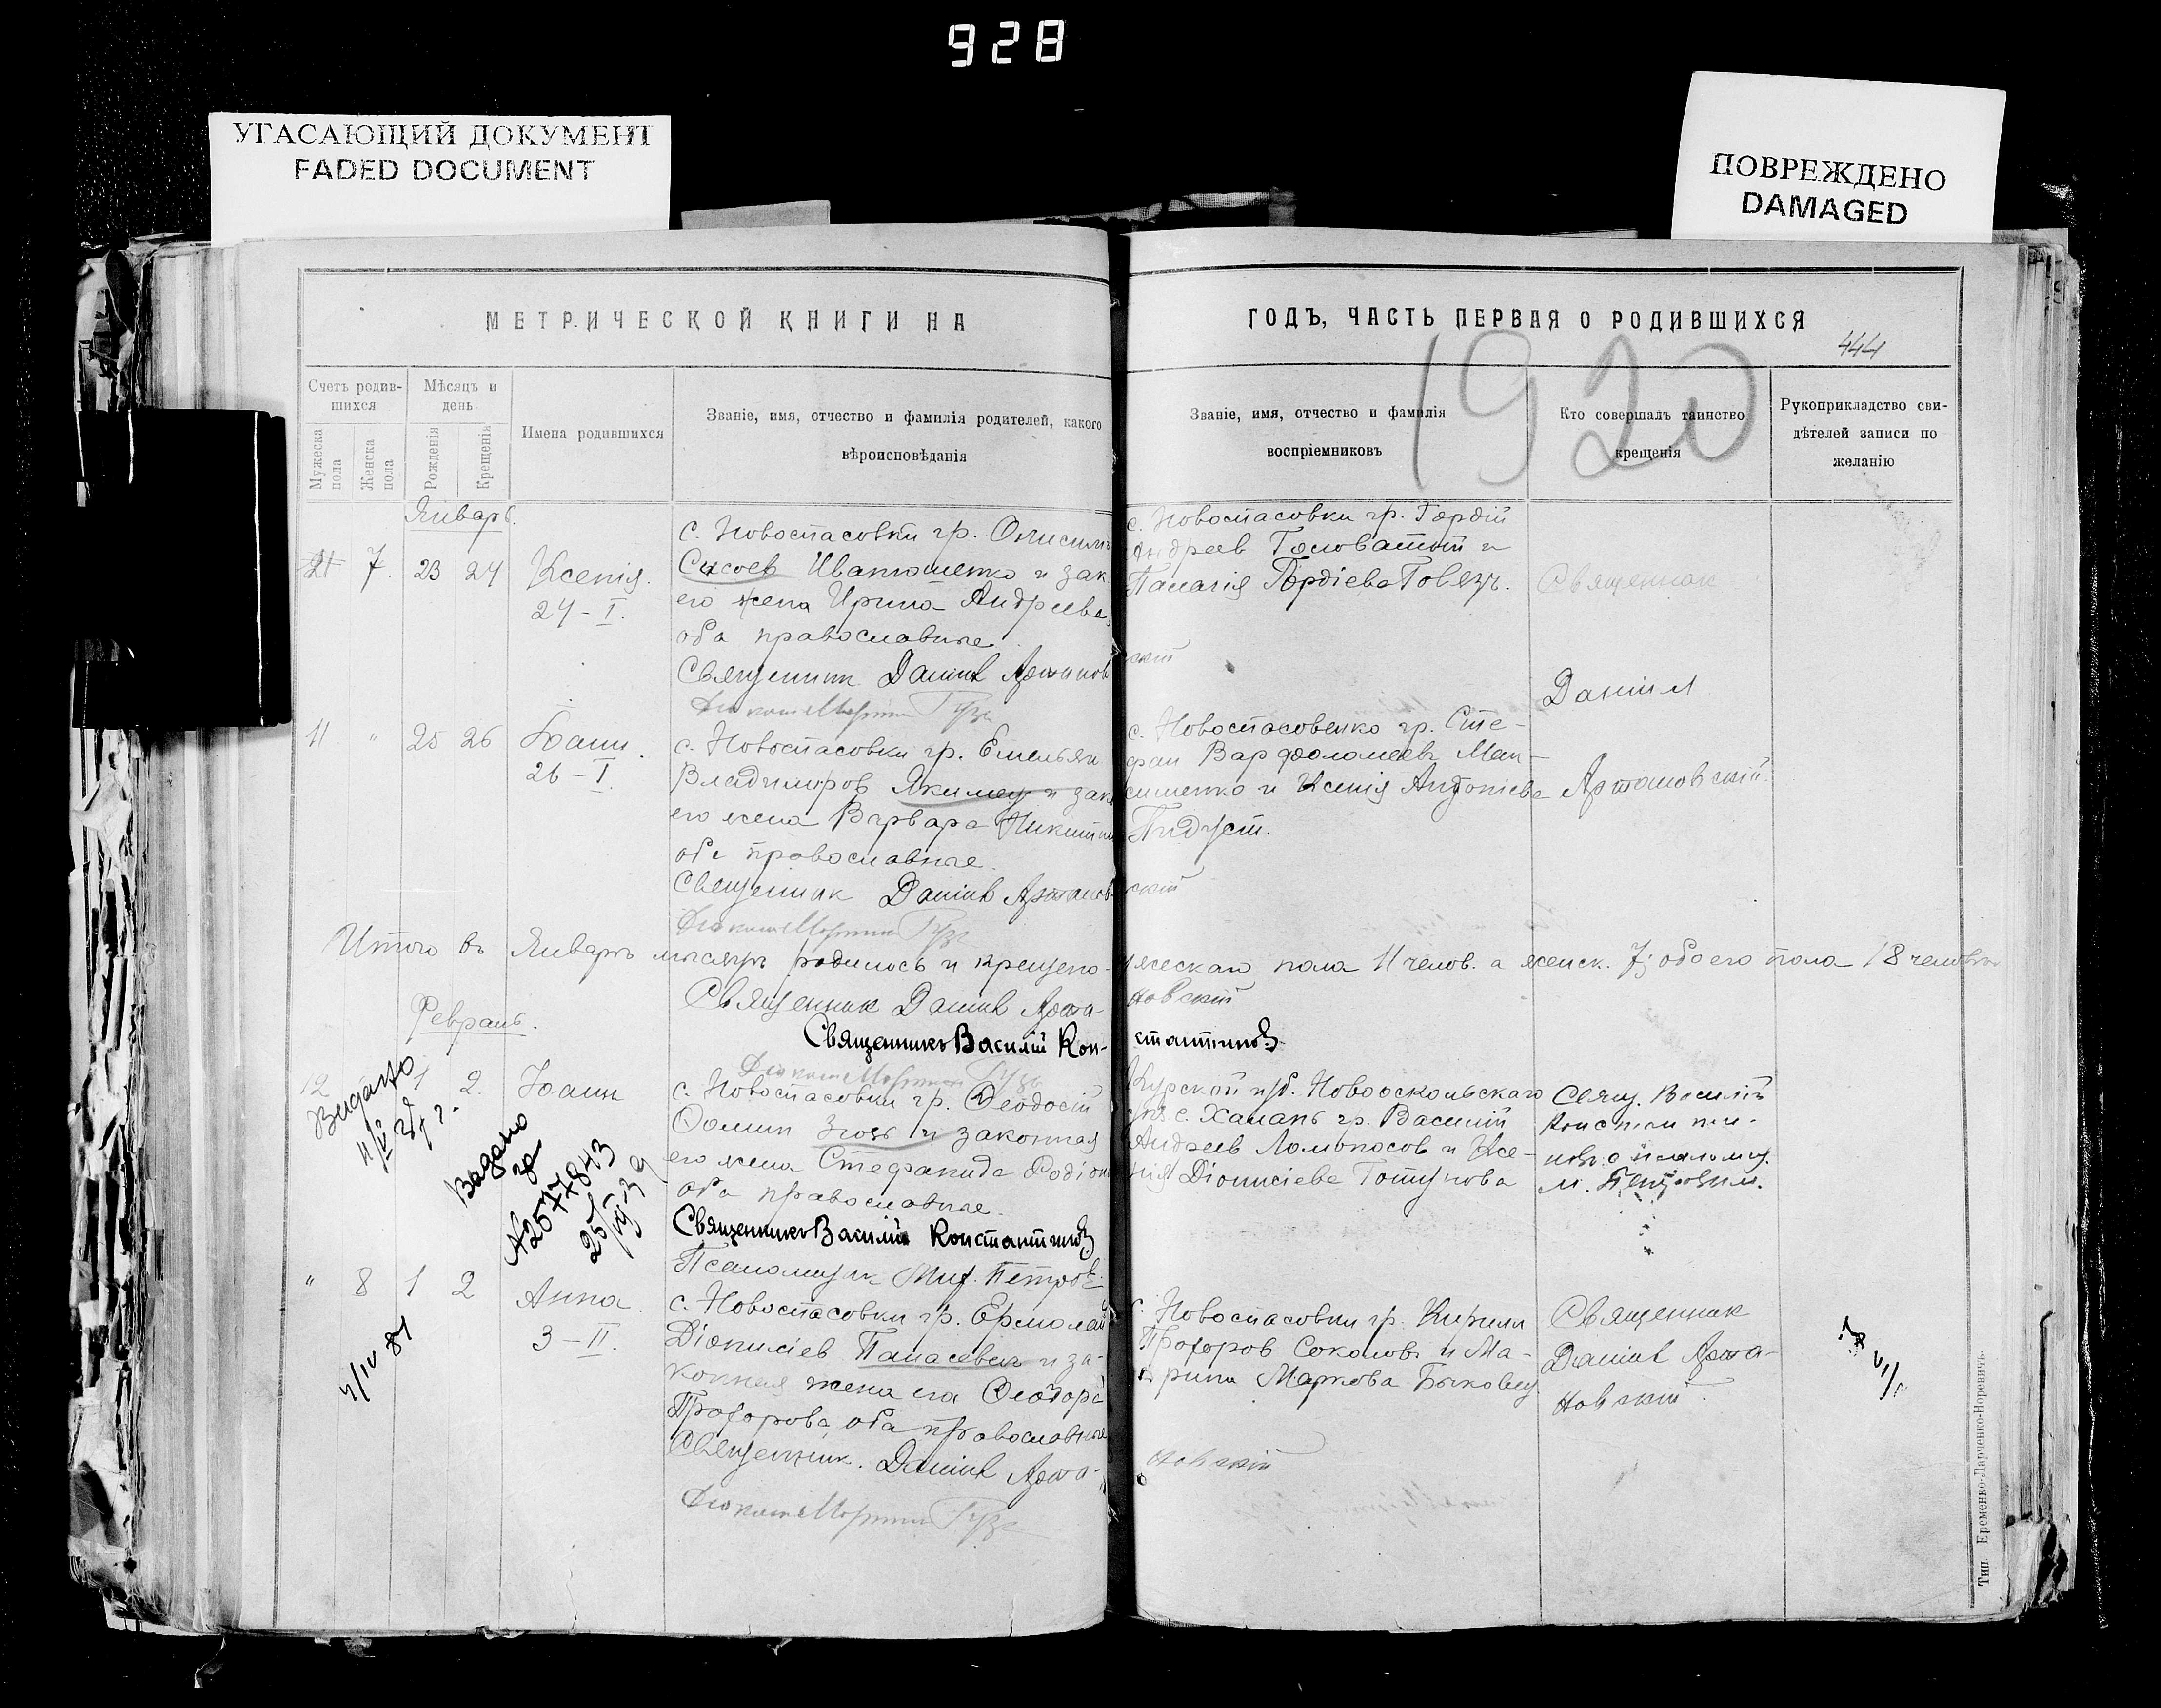 928
УГАСАЮЩИЙ ДОКУМЕНТ
FADED DOCUMENT
ПОВРЕЖДЕНО
DAMAGED
МЕТРИЧЕСКОЙ КНИГИ НА
ГОДЪ, ЧАСТЬ ПЕРВАЯ О РОДИВШИХСЯ
1920
444
Счетъ родив-
шихся
Мужеска пола
Женска пола
Мѣсяцъ и
день
Рожденія
Крещенія
Имена родившихся
Званіе, имя, отчество и фамилія родителей, какого
вѣроисповѣданія
Званіе, имя, отчество и фамилія
воспріемниковъ
Кто совершалъ таинство
крещенія
Рукоприкладство сви-
дѣтелей записи по
желанію
Январь.
7. 23 24 Ксенія.
24-I.
с. Новоспасовки гр. Онисим
Сысоев Иванющенко и зак.
его жена Ирина Андреева,
оба православные.
Священник Даниил Артанов
Диакон Мартин Гузь
с. Новоспасовки гр. Гордій
Андреев Головатый и
Палагія Гордіева Говязь.
скій
Священник
Даніил
Артановскій.
11 " 25 26 Іоанн.
26-I.
с. Новоспасовки гр. Емельян
Владимиров Якимец и зак
его жена Варвара Никитин
оба православные.
Священник Даниил Артанов
Диакон Мартин Гузь
с. Новоспасовки гр. Сте-
фан Варфоломеевъ Мак-
сименко и Ксенія Антоніева
Пидуст.
скій
Итого въ Январѣ мѣсяцѣ родилось и крещено мужескаго пола 11 челов. а женск. 7; обоего пола 18 человѣкъ
Священник Даниил Арта-
новскій
Священникъ Василій Кон-
стантиновъ
Диакон Мартин Гузь
Февраль.
12 1 2. Іоанн
Видано
Видано
А2577843
с. Новоспасовки гр. Ѳеодосій
Ѳомин Зюзь и законная
его жена Стефанида Родіон
оба православные.
Священникъ Василій Константиновъ
Псаломщик Мих. Петровъ.
Курской губ. Новооскольскаго
уѣз. с. Халань гр. Василий
Андреев Ломоносов и Ксе-
нія Діонисіева
Свящ. Василій
Константи-
новъ с псаломщ.
М. Петровым.
" 8 1 2 Анна.
3-II.
с. Новоспасовки гр. Ермолай
Діонисіев Панасевич и за-
конная жена его Ѳеодора
Прохорова, оба православные
Священник. Даниил Арта-
Диакон Мартин Гузь
с. Новоспасовки гр. Кирилл
Прохоров Соколовъ и Ма-
рина Маркова Быковец
новскій
Священник
Даниил Арта-
новскій.
Тип. Еременко-Ларченко-Норевнить.